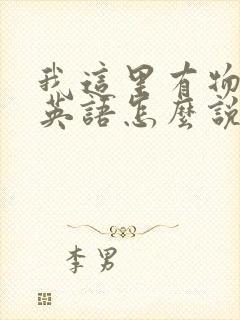 我這里有物
英語怎麼說
李男